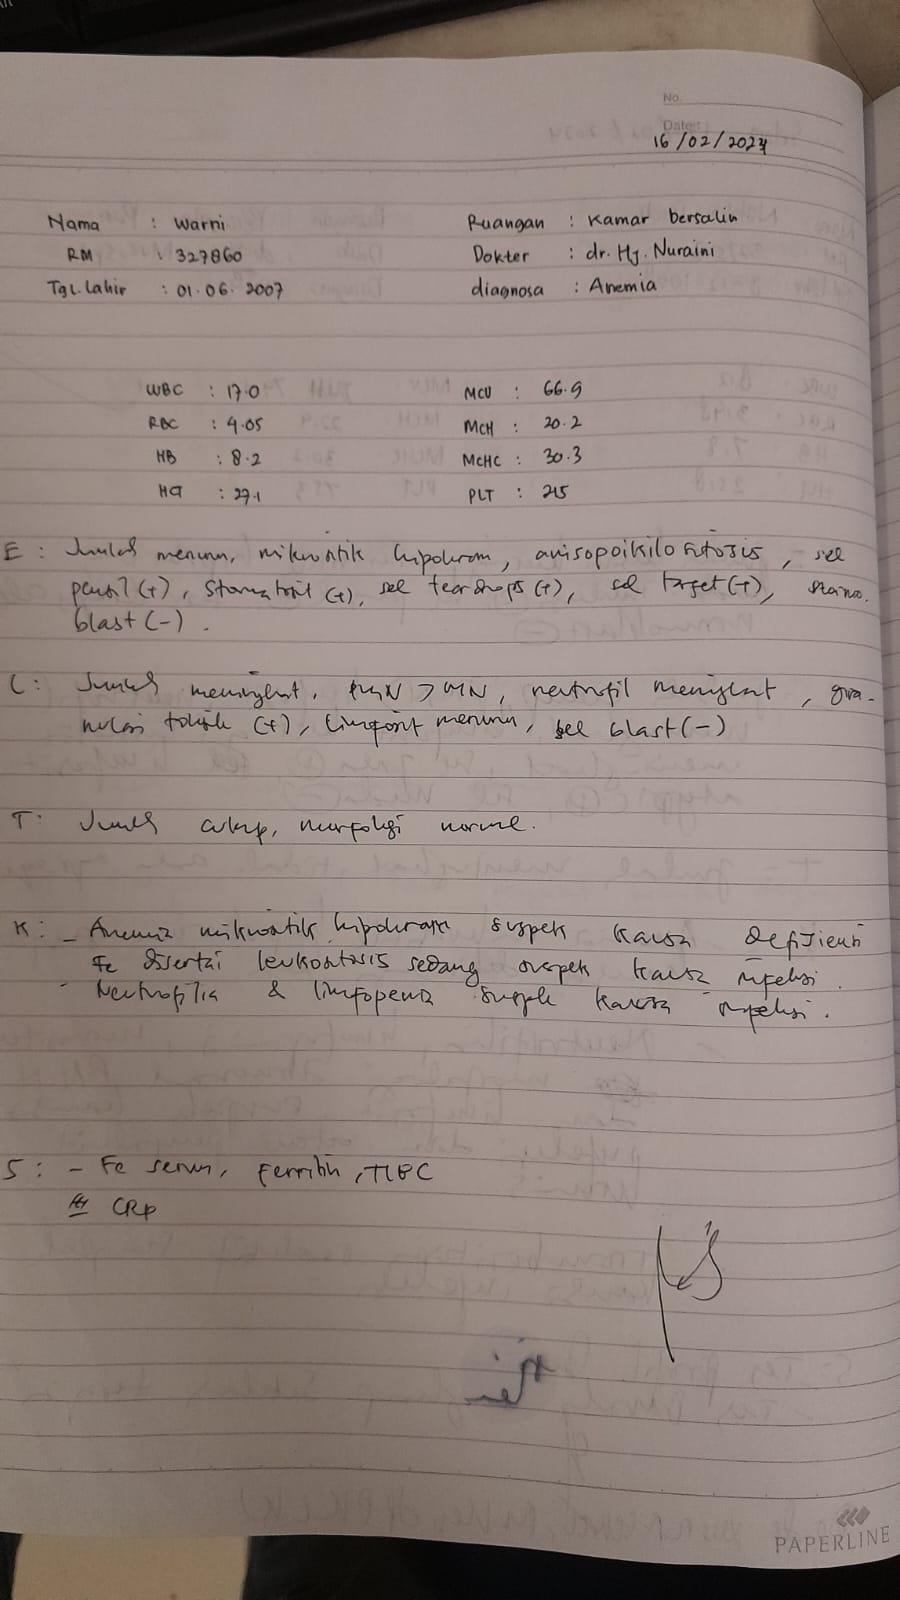 No.
Date:
16/02/2024
Nama : Warni
Ruangan : Kamar bersalin
RM : 327860
Dokter : dr. Hj. Nuraini
Tgl. Lahir : 01.06.2007
diagnosa : Anemia
WBC : 17.0
MCV : 66.9
RBC : 4.05
MCH : 20.2
HB : 8.2
MCHC : 30.3
HCT : 27.1
PLT : 215
E : Jumlah menurun, mikrositik hipokrom, anisopoikilositosis, sel
pensil (+), Stomatosit (+), sel teardrops (+), sel target (+),
blast (-).
L : Jumlah meningkat, PMN > MN, neutrofil meningkat, gra-
nulasi toksik (+), limfosit menurun, sel blast (-)
T : Jumlah cukup, morfologi normal.
K : - Anemia mikrositik hipokrom suspek kausa defisiensi
Fe disertai leukositosis sedang suspek kausa infeksi.
- Neutrofilia & limfopenia suspek kausa infeksi.
S : - Fe serum, Ferritin, TIBC
CRP
PAPERLINE